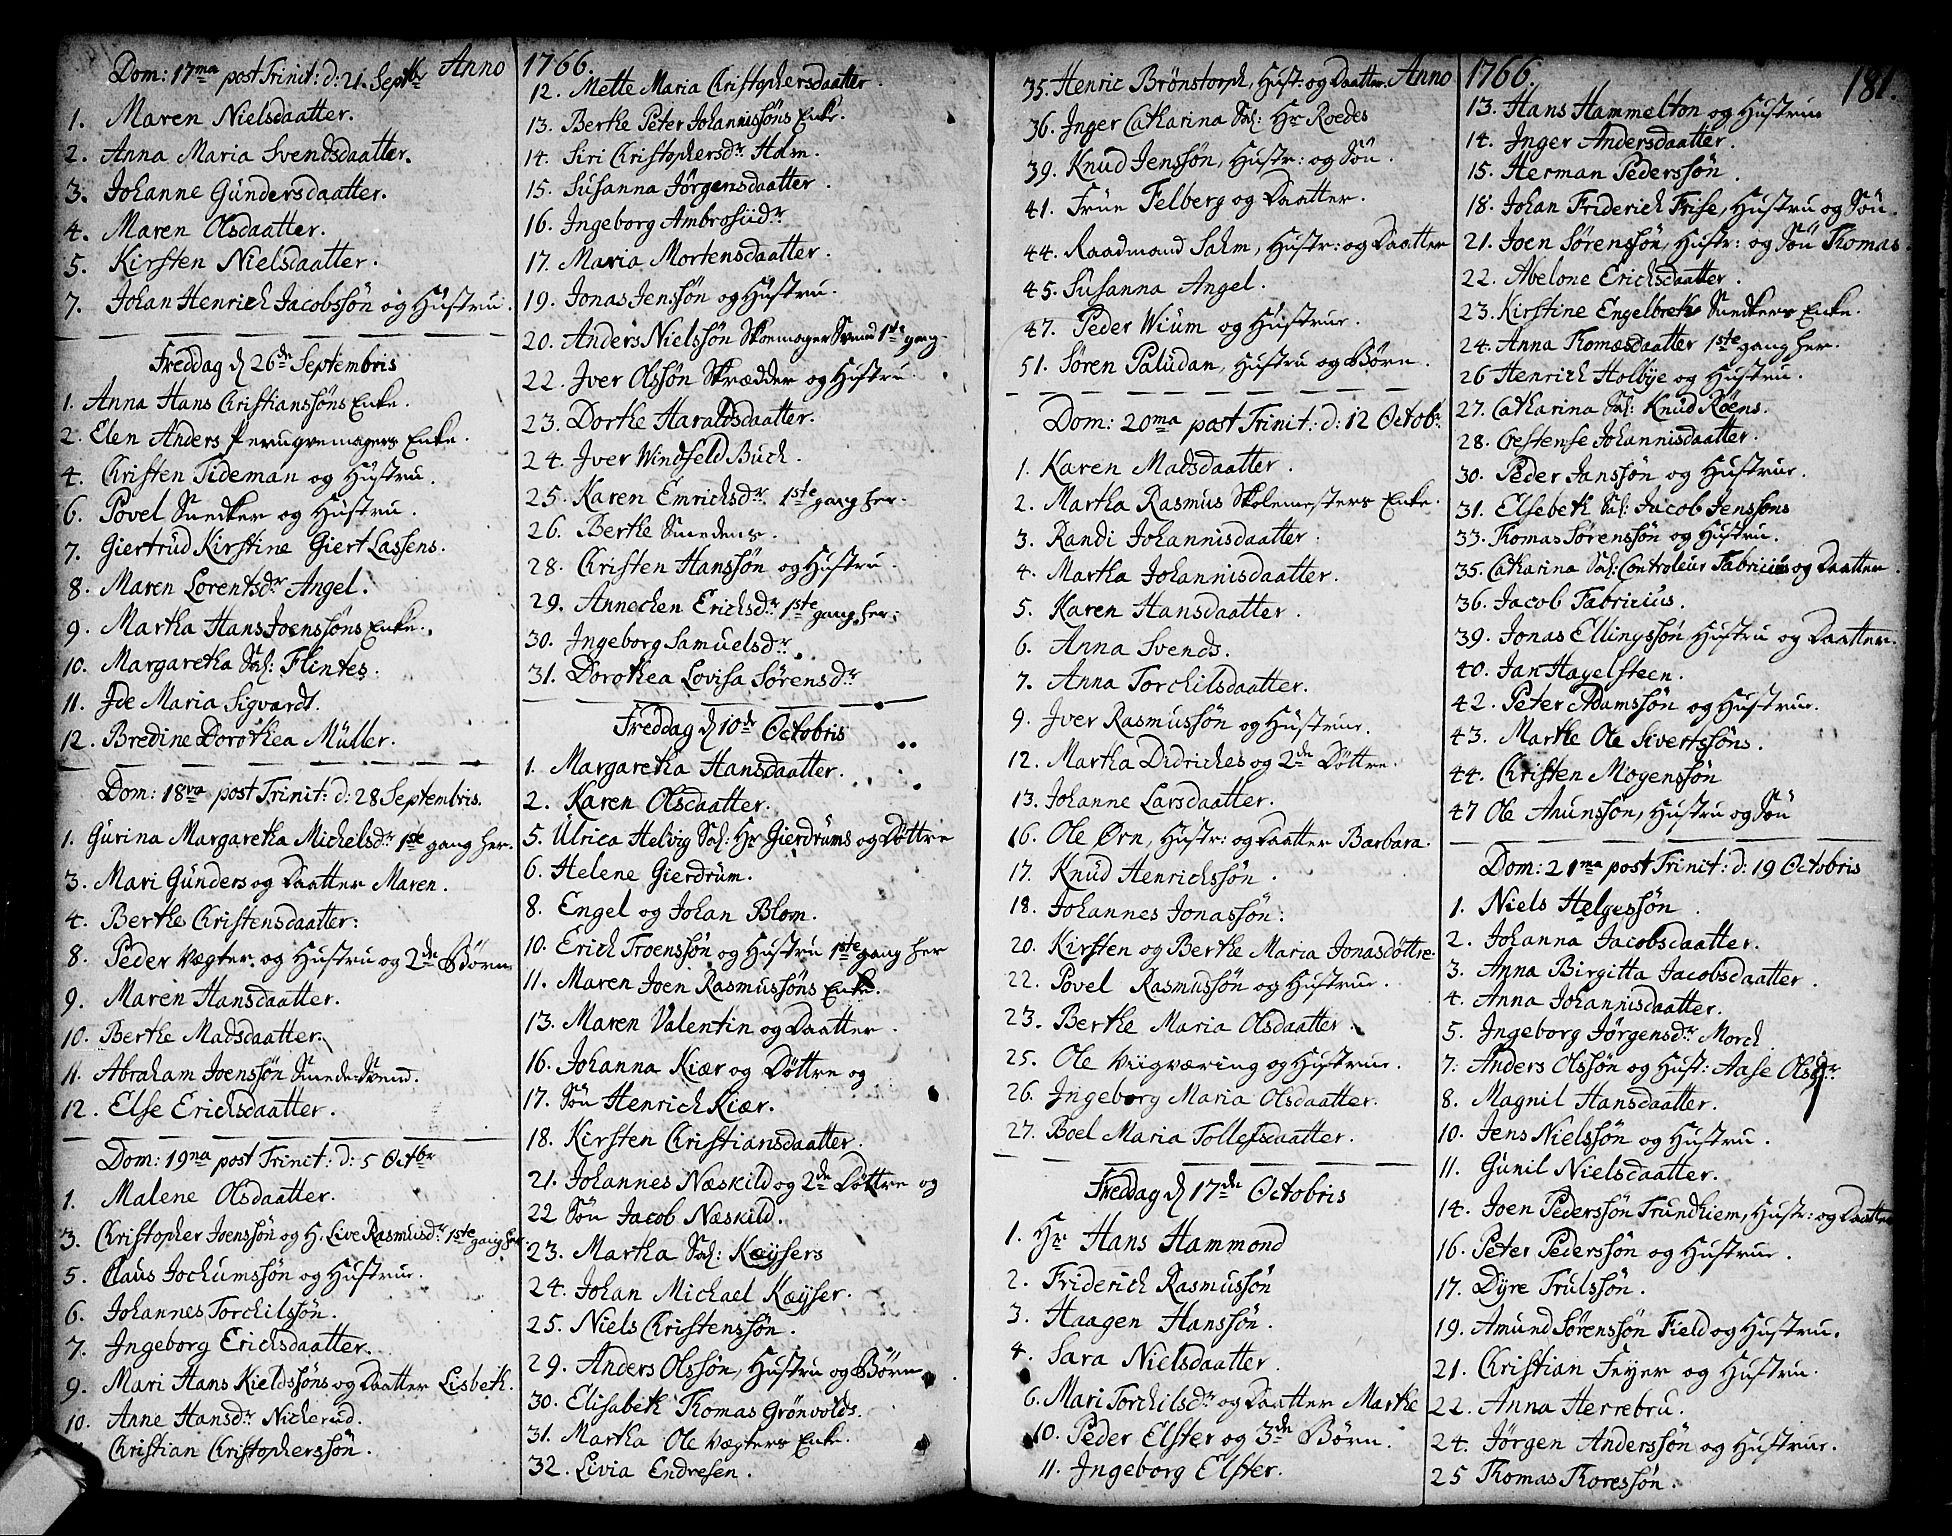 Anno 1766.
Dom: 17ma post Trinit: d: 21. Septbr
1. Maren Nielsdaatter.
2. Anna Maria Svendsdaatter.
3. Johanne Gündersdaatter.
4. Maren Olsdaatter.
5. Kirsten Nielsdaatter.
7. Johan Henrich Jacobssön og Hustru.
Freddag d 26de Septembris
1. Anna Hans Christianssöns Enke.
2. Elen Anders Peruqvemagers Enke.
4. Christen Tideman og Hustru.
6. Povel Snedker og Hustru.
7. Giertrud Kirstine Giert Lassens.
8. Maren Lorentsdr Angel.
9. Martha Hans Joenssöns Enke.
10. Margaretha Sal: Flintes.
11. Ide Maria Sigvardt.
12. Bredine Dorothea Müller.
Dom: 18va post Trinit: d: 28 Septembris.
1. Gurina Margaretha Michelsdr 1ste gang her.
3. Mari Günders og Daatter Maren.
4. Berthe Christensdaatter.
8. Peder Vægter og Hustru og 2de Börn
9. Maren Hansdaatter.
10. Berthe Madsdaatter.
11. Abraham Joenssön Smede Svend.
12. Else Erichsdaatter.
Dom: 19na post Trinit: d: 5 Octbr
1. Malene Olsdaatter.
3. Christopher Joenssön og H. Live Rasmusdr 1ste gang her
5. Claus Jochumssön og Hustrue.
6. Johannes Torchilssön.
7. Ingeborg Erichsdaatter.
9. Mari Hans Kieldssöns og Daatter Lisbeth.
10. Anne Hansdr Nicherud.
Christian Christopherssön.
12. Mette Maria Christophersdaatter.
13. Berthe Peter Johannissöns Enke.
14. Siri Christophersdr Ham.
15. Susanna Jörgensdaatter.
16. Ingeborg Ambrosiidr
17. Maria Mortensdaatter.
19. Jonas Jenssön og Hustru.
20. Anders Nielssön Skoemager Svend 1ste gang.
22. Iver Olssön Skrædder og Hustru.
23. Dorthe Haraldsdaatter.
24. Iver Windfeld Buch.
25. Karen Emrichsdr 1ste gang her.
26. Berthe Smedens.
28. Christen Hanssön og Hustru.
29. Annechen Erichsdr 1ste gang her.
30. Ingeborg Samuelsdr
31. Dorothea Lovisa Sörensdr
Freddag d 10de Octobris
1. Margaretha Hansdaatter.
2. Karen Olsdaatter.
5. Ulrica Helvig Sal: Hr Gierdrums og Döttre
6. Helene Gierdrum.
8. Engel og Johan Blom.
10. Erich Troenssön og Hustru 1ste gang her
11. Maren Joen Rasmussöns Enke.
13. Maren Valentin og Daatter.
16. Johanna Kiær og Döttre og
17. Sön Henrich Kiær.
18. Kirsten Christiansdaatter.
21. Johannes Næskild og 2de Döttre og
22 Sön Jacob Næskild.
23. Martha Sal: Kæysers
24. Johan Michael Kæyser.
25. Niels Christenssön.
29. Anders Olssön, Hustru og Börn
30. Elisabeth Thomas Grönvolds.
31. Martha Ole Vægters Enke.
32. Livia Endresen.
Anno 1766. 181.
35. Henric Brönstorph, Hust: og Daatter.
36. Inger Catharina Sal: Hr Roedes
39. Knud Jenssön, Hustr: og Sön.
41. Frue Felberg og Daatter.
44. Raadmand Sahm, Hustr: og Daatter
45. Susanna Angel.
47. Peder Wium og Hustrue.
51. Sören Paludan, Hustru og Börn.
Dom: 20ma post Trinit: d: 12 Octobr.
1. Karen Madsdaatter.
2. Martha Rasmus Skolemesters Enke.
3. Randi Johannisdaatter.
4. Martha Johannisdaatter.
5. Karen Hansdaatter.
6. Anna Svends.
7. Anna Torchilsdaatter.
9. Iver Rasmussön og Hustrue.
12. Martha Didriches og 2de Döttre.
13. Johanne Larsdaatter.
16. Ole Örn, Hustr: og Daatter Barbara.
17. Knüd Henrichssön.
18. Johannes Jonassön.
20. Kirsten og Berthe Maria Jonasdöttre.
22. Povel Rasmussön og Hustrue.
23. Berthe Maria Olsdaatter
25. Ole Viigværing og Hustrue.
26. Ingeborg Maria Olsdaatter.
27. Boel Maria Tollefsdaatter.
Freddag d 17de Octobris
1. Hr Hans Hammond
2. Friderich Rasmussön
3. Haagen Hanssön.
4. Sara Nielsdaatter.
6. Mari Torchilsdr og Daatter Marthe
10. Peder Elster og 3de Börn.
11. Ingeborg Elster.
13. Hans Hammelton og Hustrue
14. Inger Andersdaatter.
15. Herman Pederssön.
18. Johan Friderich Frise, Hustru og Sön.
21. Joen Sörenssön, Hustr: og Sön Thomas.
22. Abelone Erichsdaatter.
23. Kirstine Engelbreth Snedkers Enke.
24. Anna Thomæsdaatter 1ste gang her.
26 Henrich Holbye og Hustru.
27. Catharina Sal: Knud Röens.
28. Crestense Johannisdaatter.
30. Peder Janssön og Hustrue.
31. Elsebeth Sal: Jacob Jenssöns
33. Thomas Sörenssön og Hustru.
35. Catharina Sal: Controleur Fabricius og Daatter.
36. Jacob Fabricius.
39. Jonas Ellingssön Hustru og Daatter.
40. Jan Hagelsteen.
42. Peter Adamssön og Hustrue.
43. Marthe Ole Sivertssöns.
44. Christen Mogenssön
47 Ole Amunssön, Hustru og Sön
Dom: 21ma post Trinit: d: 19 Octobris
1. Niels Helgessön.
2. Johanna Jacobsdaatter.
3. Anna Birgitta Jacobsdaatter.
4. Anna Johannisdaatter.
5. Ingeborg Jörgensdr Morch
7. Anders Olssön og Hust: Aase Olsdr
8. Magnil Hansdaatter.
10. Jens Nielssön og Hustru.
11. Gunil Nielsdaatter.
14. Joen Pederssön Trundhiem, Hustr: og Daatter
16. Peter Pederssön og Hustrue.
17. Dyre Trulssön.
19. Amund Sörenssön Field og Hustru.
21. Christian Feyer og Hustru.
22. Anna Herrebru.
24. Jörgen Anderssön og Hustrue.
25 Thomas Thoressön.